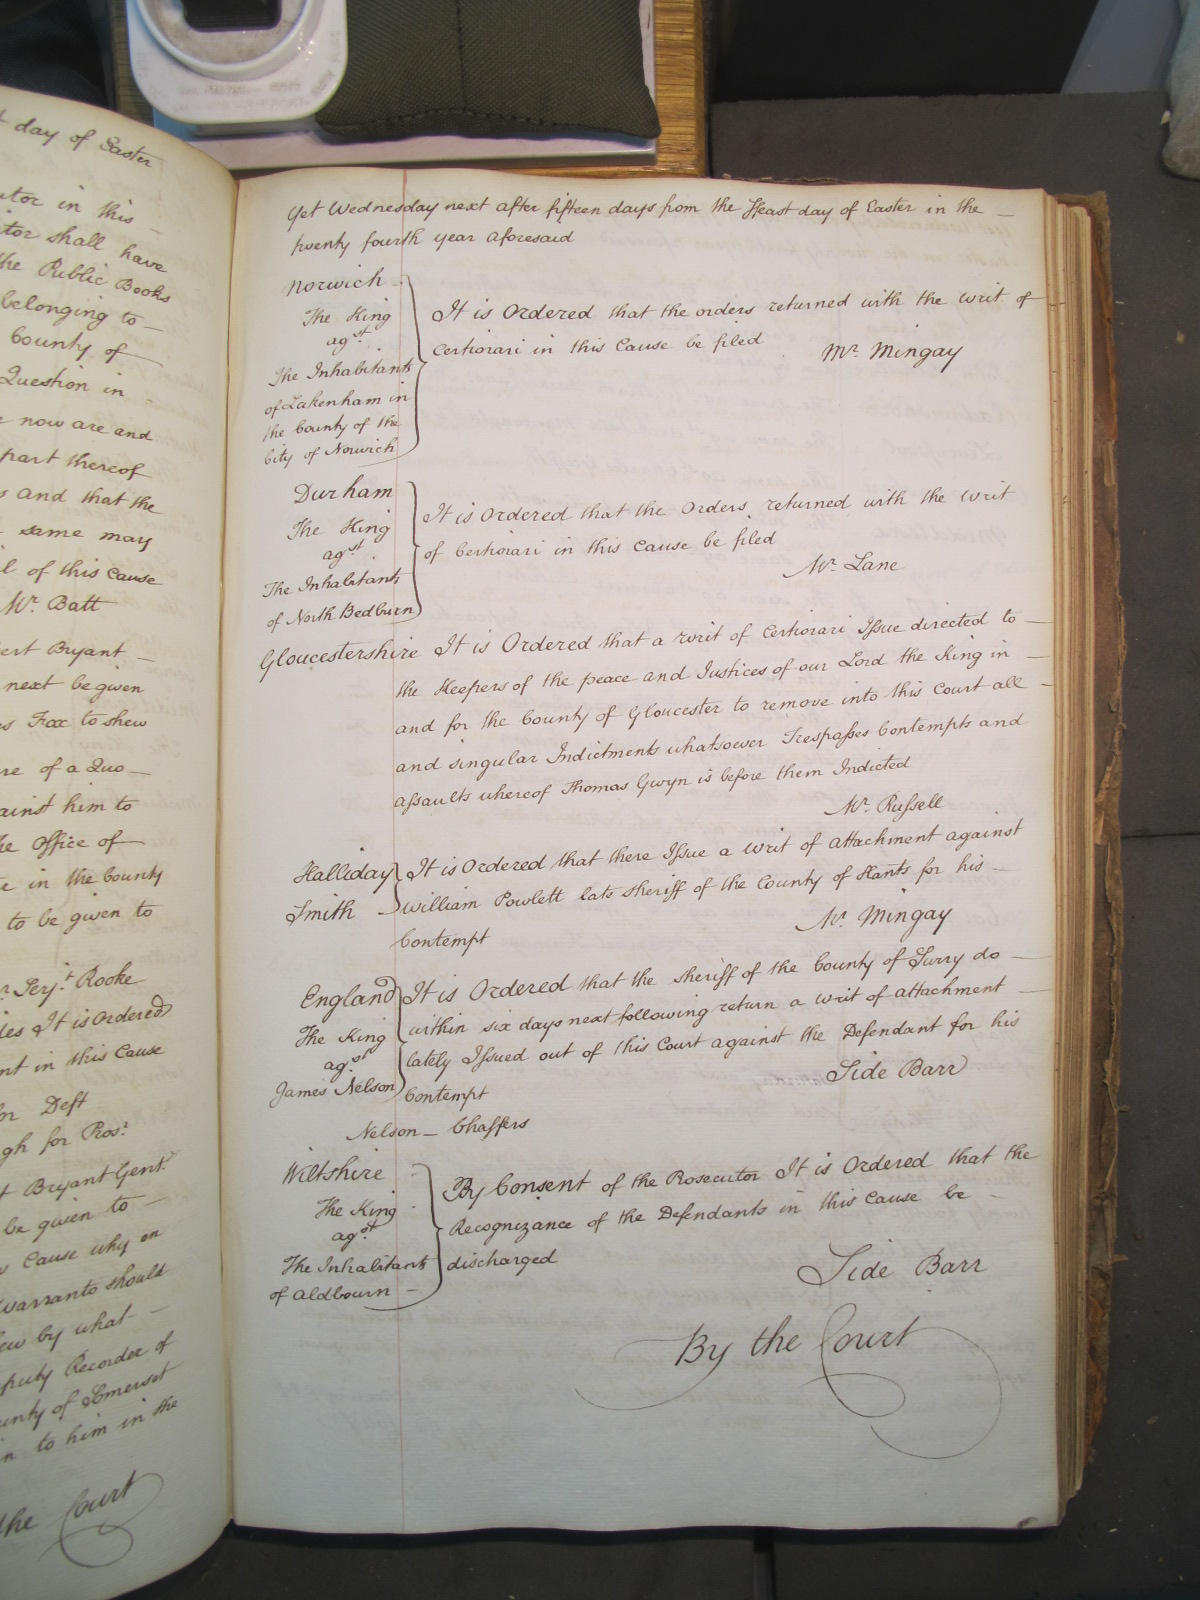 t day of Easter
utor in this
itor shall have
the Public Books
belonging to
County of
Question in
now are and
part thereof
s and that the
same may
l of this Cause
Mr. Batt
ert Bryant
next be given
es Fox to shew
re of a Quo
ainst him to
he Office of
e in the County
to be given to
r Serjt. Rooke
ies It is Ordered
nt in this Cause
for Deft
gh for Prosr
t Bryant Gent.
be given to
w Cause why an
Warranto should
ew by what
eputy Recorder of
unty of Somerset
n to him in the
the Court
Yet Wednesday next after fifteen days from the Feast day of Easter in the
twenty fourth year aforesaid
Norwich
The King
agst.
The Inhabitants
of Lakenham in
the County of the
City of Norwich
It is Ordered that the orders returned with the writ of
Certiorari in this Cause be filed
Mr. Mingay
Durham
The King
agst.
The Inhabitants
of North Bedburn
It is Ordered that the Orders returned with the writ
of Certiorari in this Cause be filed
Mr. Lane
Gloucestershire It is Ordered that a writ of Certiorari Issue directed to
the Keepers of the peace and Justices of our Lord the King in
and for the County of Gloucester to remove into this Court all
and singular Indictments whatsoever Trespasses Contempts and
assaults whereof Thomas Gwyn is before them Indicted
Mr. Russell
Halliday
Smith
It is Ordered that there Issue a writ of attachment against
William Powlett late sheriff of the County of Hants for his
Contempt
Mr. Mingay
England
The King
agst.
James Nelson
It is Ordered that the sheriff of the County of Surry do
within six days next following return a writ of attachment
lately Issued out of this Court against the Defendant for his
Contempt
Side Barr
Nelson – Chaffers
Wiltshire
The King
agst.
The Inhabitants
of Aldbourn
By Consent of the Prosecutor It is Ordered that the
Recognizance of the Defendants in this Cause be
discharged
Side Barr
By the Court